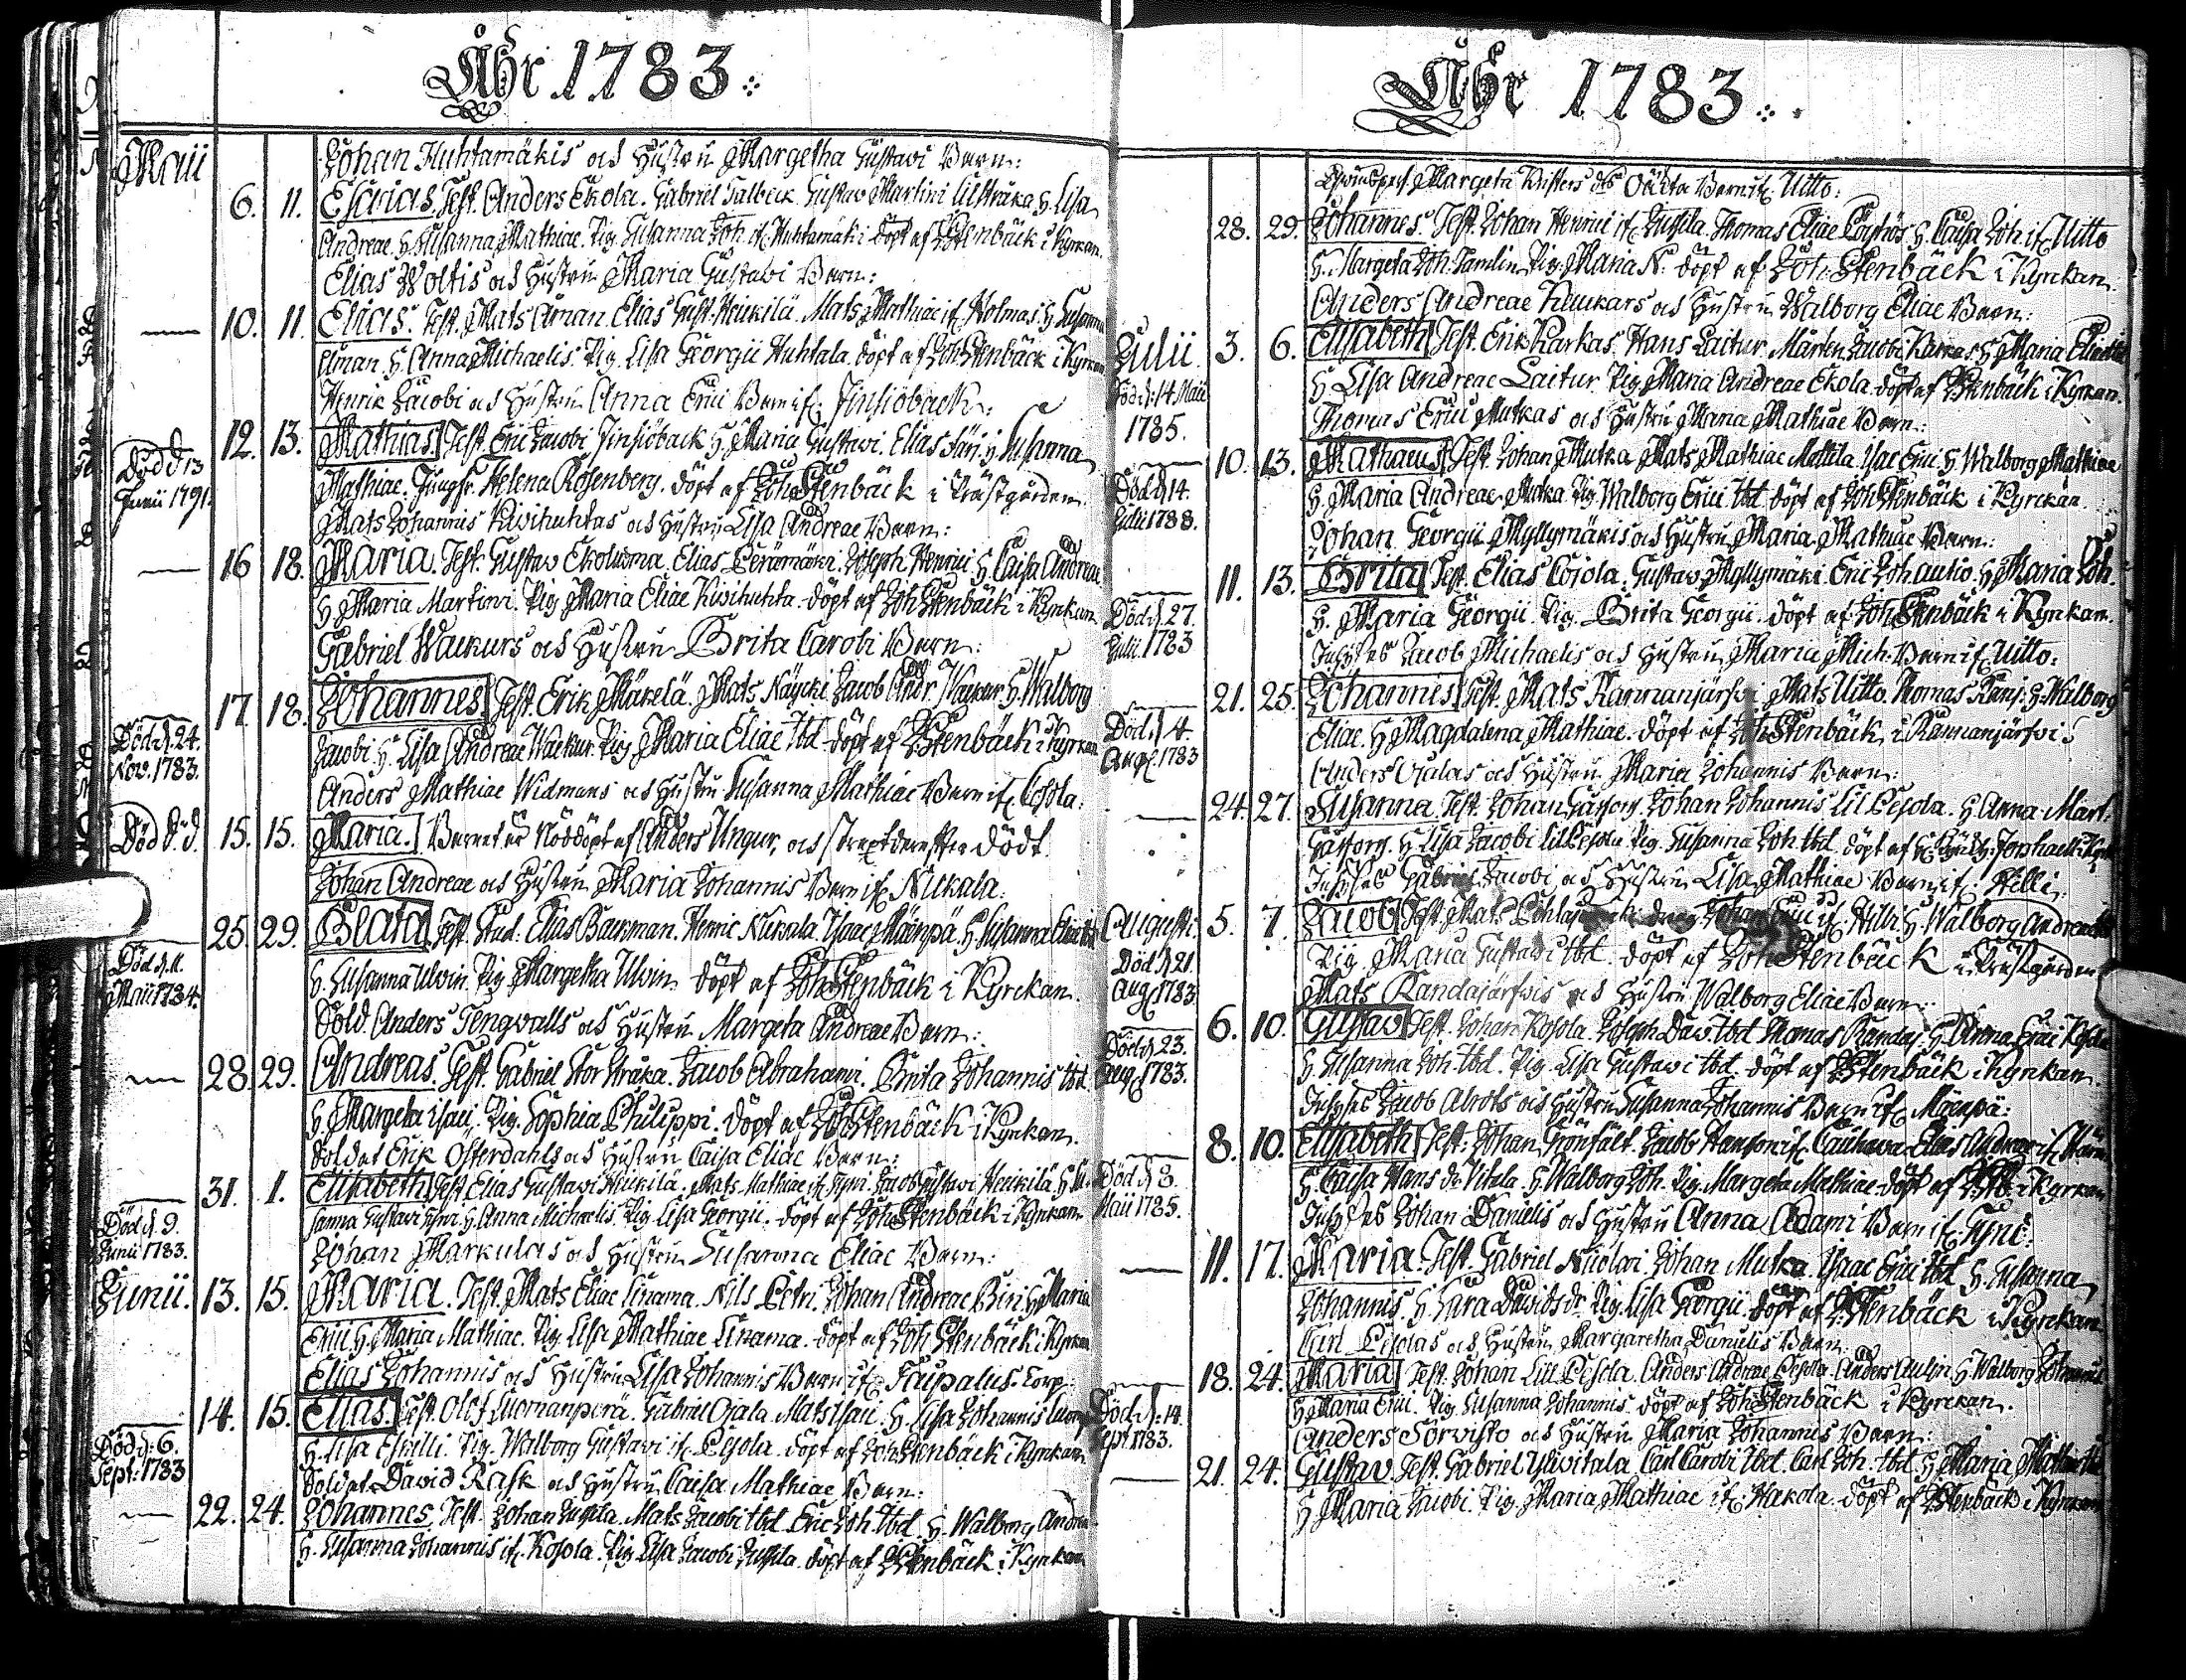 Åhr 1783.
Maii
Johan Huhtamäkis och Hustru Margetha Gustavi Barn:
6. 11. Esaias. Test. Anders Ekola. Gabriel Salbeck. Gustav Martini H. Lisa
Andreae. H. Susanna Mathiae. Pig. Susanna Joh. if. Huhtamäki. döpt af J. Stenbäck i Kyrkan.
Elias Woltis och Hustru Maria Gustavi Barn:
10. 11. Elias. Test. Mats Åman. Elias Gust. Heikilä. Mats Mathiae if. Holmas. H. Susanna
Åman. H. Anna Michaelis. Pig. Lisa Georgii Huhtala. döpt af Joh. Stenbäck i Kyrkan
Henrik Jacobi och Hustru Anna Erici Barn if. Jinsiöback:
12. 13. Mathias. Test. Eric Jacobi Jinsiöback H. Maria Gustavi. Elias H. Susanna
Död d. 13
Junii 1791.
Mathiae. Jungfr. Helena Rosenberg. döpt af Joh. Stenbäck i Prästgården.
Mats Johannis Kivihuhtas och Hustru Lisa Andreae Barn:
16 18. Maria. Test. Gustav Ekoluoma. Elias Perämäki. Joseph Henrici H. Caisa Andreae
H. Maria Martini. Pig. Maria Eliae Kivihuhta. döpt af Joh. Stenbäck i Kyrkan
Gabriel Wackurs och Hustru Brita Caroli Barn:
17. 18. Johannes Test. Erik Mäkelä. Mats Näycki. Jacob Andr. Wackur. H. Walborg
Död d. 24.
Nov. 1783.
Jacobi. H. Lisa Andreae Wackur. Pig. Maria Eliae Ibd. döpt af J. Stenbäck i Kyrkan
Anders Mathiae Widmans och Hustru Susanna Mathiae Barn if.
Död d. d. 15. 15. Maria. Barnet är Nöddöpt af Anders Ungur, och strax derefter dödt.
Johan Andreae och Hustru Maria Johannis Barn if. Nickala:
25. 29. Beata Test. Stud. Elias Backman. Henric Nickala. Isaac Mäenpä. H. Susanna
Död d. 11.
Maii 1784.
H. Susanna Ulvin. Pig. Margetha Ulvin. döpt af Joh. Stenbäck i Kyrckan.
Sold. Anders Tengvalls och Hustru Margeta Andreae Barn:
28. 29. Andreas. Test. Gabriel Stor Straka. Jacob Abrahami. Brita Johannis Ibd.
H. Margeta Isaci. Pig. Sophia Philippi. döpt af Joh. Stenbäck i Kyrkan.
Soldat Erik Österdahls och Hustru Caisa Eliae Barn:
31. 1. Elisabeth Test. Elias Gustavi Heickilä. Mats Mathiae if. Jacob Gustavi Heickilä. H. Su-
Död d. 9.
Junii 1783.
sanna Gustavi H. Anna Michaelis. Pig. Lisa Georgii. döpt af Joh. Stenbäck i Kyrkan
Johan Markulas och Hustru Susanna Eliae Barn:
Junii. 13. 15. Maria. Test. Mats Eliae Linama. Nils Petri. Johan Andreae H. Maria
Erici. H. Maria Mathiae. Pig. Lisa Mathiae Linama. döpt af Joh. Stenbäck i Kyrkan
Elias Johannis och Hustru Lisa Johannis Barn if. Taipalus Torp:
14. 15. Elias. Test. Olof Luomanperä. Gabriel Ojala. Mats Isaci. H. Lisa Johannis
Död d. 6.
Sept: 1783
H. Lisa Pig. Walborg Gustavi if. Pesola. döpt af Joh. Stenbäck i Kyrkan
Soldat David Rask och Hustru Caisa Mathiae Barn:
22. 24. Johannes. Test. Johan Jussila. Mats Jacobi ibd. Eric Joh. Ibd. H. Walborg Andreae
H. Susanna Johannis if. Kosola. Pig. Lisa Jacobi Jussila. döpt af J. Stenbäck i Kyrkan
Åhr 1783.
Margeta Kristers dr Oächta Barn if. Uitto:
28. 29. Johannes. Test. Johan Henrici if. Jussila. Thomas Eliae H. Caisa Joh. if. Uitto
H. Margeta Joh. Tamlin. Pig. Maria N. döpt af Joh. Stenbäck i Kyrkan.
Anders Andreae Kaukars och Hustru Walborg Eliae Barn:
Julii 3. 6. Elisabeth Test. Erik Karkas. Hans Laitur. Mårten Jacobi H. Maria
Död d. 14 Maii
1785.
H. Lisa Andreae Laitur. Pig. Maria Andreae Ekola. döpt af J. Stenbäck i Kyrkan.
Thomas Erici Mutkas och Hustru Maria Mathiae Barn:
10. 13. Mathaeus Test. Johan Mutka. Mats Mathiae Isac Erici H. Walborg Mathiae
Död d. 14.
Julii 1788.
H. Maria Andreae Mutka. Pig. Walborg Erici Ibd. döpt af Joh. Stenbäck i Kyrckan.
Johan Georgii Myllymäkis och Hustru Maria Mathiae Barn:
11. 13. Brita Test. Elias Cojola. Gustav Myllymäki. Eric Joh. autio. H. Maria Joh.
Död d. 27.
Julii. 1783
H. Maria Georgii. Pig. Brita Georgii. döpt af Joh. Stenbäck i Kyrkan.
Inhyses Jacob Michaelis och Hustru Maria Mich. Barn if. Uitto:
21. 25. Johannis Test. Mats Kannanjärfwi. Mats Uitto. Thomas H. Walborg
Död d. 4.
Aug. 1783
Eliae. H. Magdalena Mathiae. döpt af Joh. Stenbäck i Kannanjärfwi.
Anders Ojalas och Hustru Maria Johannis Barn:
24. 27. Susanna. Test. Johan Johan Johannis Lil Pesola. H. Anna Mart.
H. Lisa Jacobi Lil Pesola. Pig. Susanna Joh. Ibd. döpt af
Inhyses Gabriel Jacobi och Hustru Lisa Mathiae Barn if. Hilli:
Augusti. 5. 7. Jacob Test. Mats Johan Erici if. Hilli. H. Walborg Andreae
Död d. 21.
Aug. 1783
Pig. Maria Gustavi Ibd. döpt af Joh. Stenbäck i Prästgården
Mats Kandajärfwis och Hustru Walborg Eliae Barn:
6. 10. Gustav Test. Johan Kosola. Joseph Dav. Ibd. Thomas H. Anna Erici
Död d. 23.
Aug. 1783.
H. Susanna Joh. Ibd. Pig. Lisa Gustavi Ibd. döpt af J. Stenbäck i Kyrkan.
Inhyses Jacob och Hustru Susanna Johannis Barn if. Mäenpä:
8. 10. Elisabeth Test: Johan Grönfält. Jacob if. Cauhava. Elias Andreae if.
Död d. 8.
Maii 1785.
H. Caisa Hans dr H. Walborg Joh. Pig. Margeta Mathiae. döpt af i Kyrkan
Inhyses Johan Danielis och Hustru Anna Adami Barn if.
11. 17. Maria. Test. Gabriel Nicolai. Johan Mutka. Isaac Erici Ibd. H. Susanna
Johannis. H. Sara Davids dr. Pig. Lisa Georgii. döpt af J. Stenbäck i Kyrkan
Carl Pesolas och Hustru Margaretha Danielis Barn:
18. 24. Maria Test. Johan Lill Pesola. Anders Andreae Pesola. Anders H. Walborg Johannis
Död d. 14.
Sept 1783.
H. Maria Erici. Pig. Susanna Johannis. döpt af Joh. Stenbäck i Kyrckan.
Anders Sorvisto och Hustru Maria Johannis Barn:
21. 24. Gustav. Test. Gabriel Yliwitala. Carl Caroli Ibd. Carl Joh. Ibd. H. Maria
H. Maria Jacobi. Pig. Maria Mathiae if. Hakola. döpt af J. Stenbäck i Kyrkan